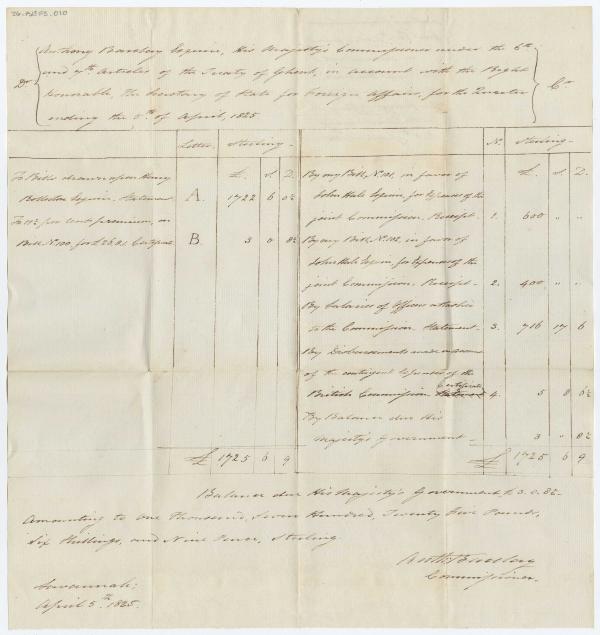 Anthony Barclay Esquire, His Majesty's Commissioner under the 6th
and 7th Articles of the Treaty of Ghent, in account with the Right
Dr. Cr.
Honorable, the Secretary of State for Foreign Affairs, for the Quarter
ending the 5th of April, 1825
Letter. Sterling. No. Sterling.
£. S. D. £. S. D.
To Bills drawn upon Henry
Rolleston Esquire, Statement. A. 1722 6 0½
To 11½ per cent premium, on
Bill, No. 100, for £26.2.1. Certificate B. 3 0 8½
£ 1725 6 9
By my Bill, No. 101, in favor of
John Hale Esquire, for Expenses of the
joint Commission. Receipt. 1. 600 " "
By my Bill, No. 102, in favor of
John Hale Esquire, for Expenses of the
joint Commission. Receipt. 2. 400 " "
By Salaries of Officers attached
to the Commission. Statement. 3. 716 17 6
By Disbursements made on account
of the contingent Expenses of the
Certificate
British Commission Statement 4. 5 8 6½
By Balance due His
Majesty's Government 3 " 8½
£ 1725 6 9
Balance due His Majesty's Government £3.0.8½
Amounting to One Thousand, Seven Hundred, Twenty Five Pounds,
Six Shillings, and Nine Pence, Sterling.
Anth: Barclay
Commissioner.
Savannah;
April 5th 1825.